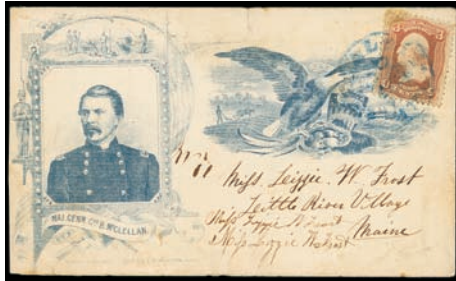 MAJ. GENR. GEO. B. McCLELLAN.
Miss. Lizzie. W. Frost
Little River Village
Maine
Miss Lizzie W Frost
Miss Lizzie W Frost
3
3